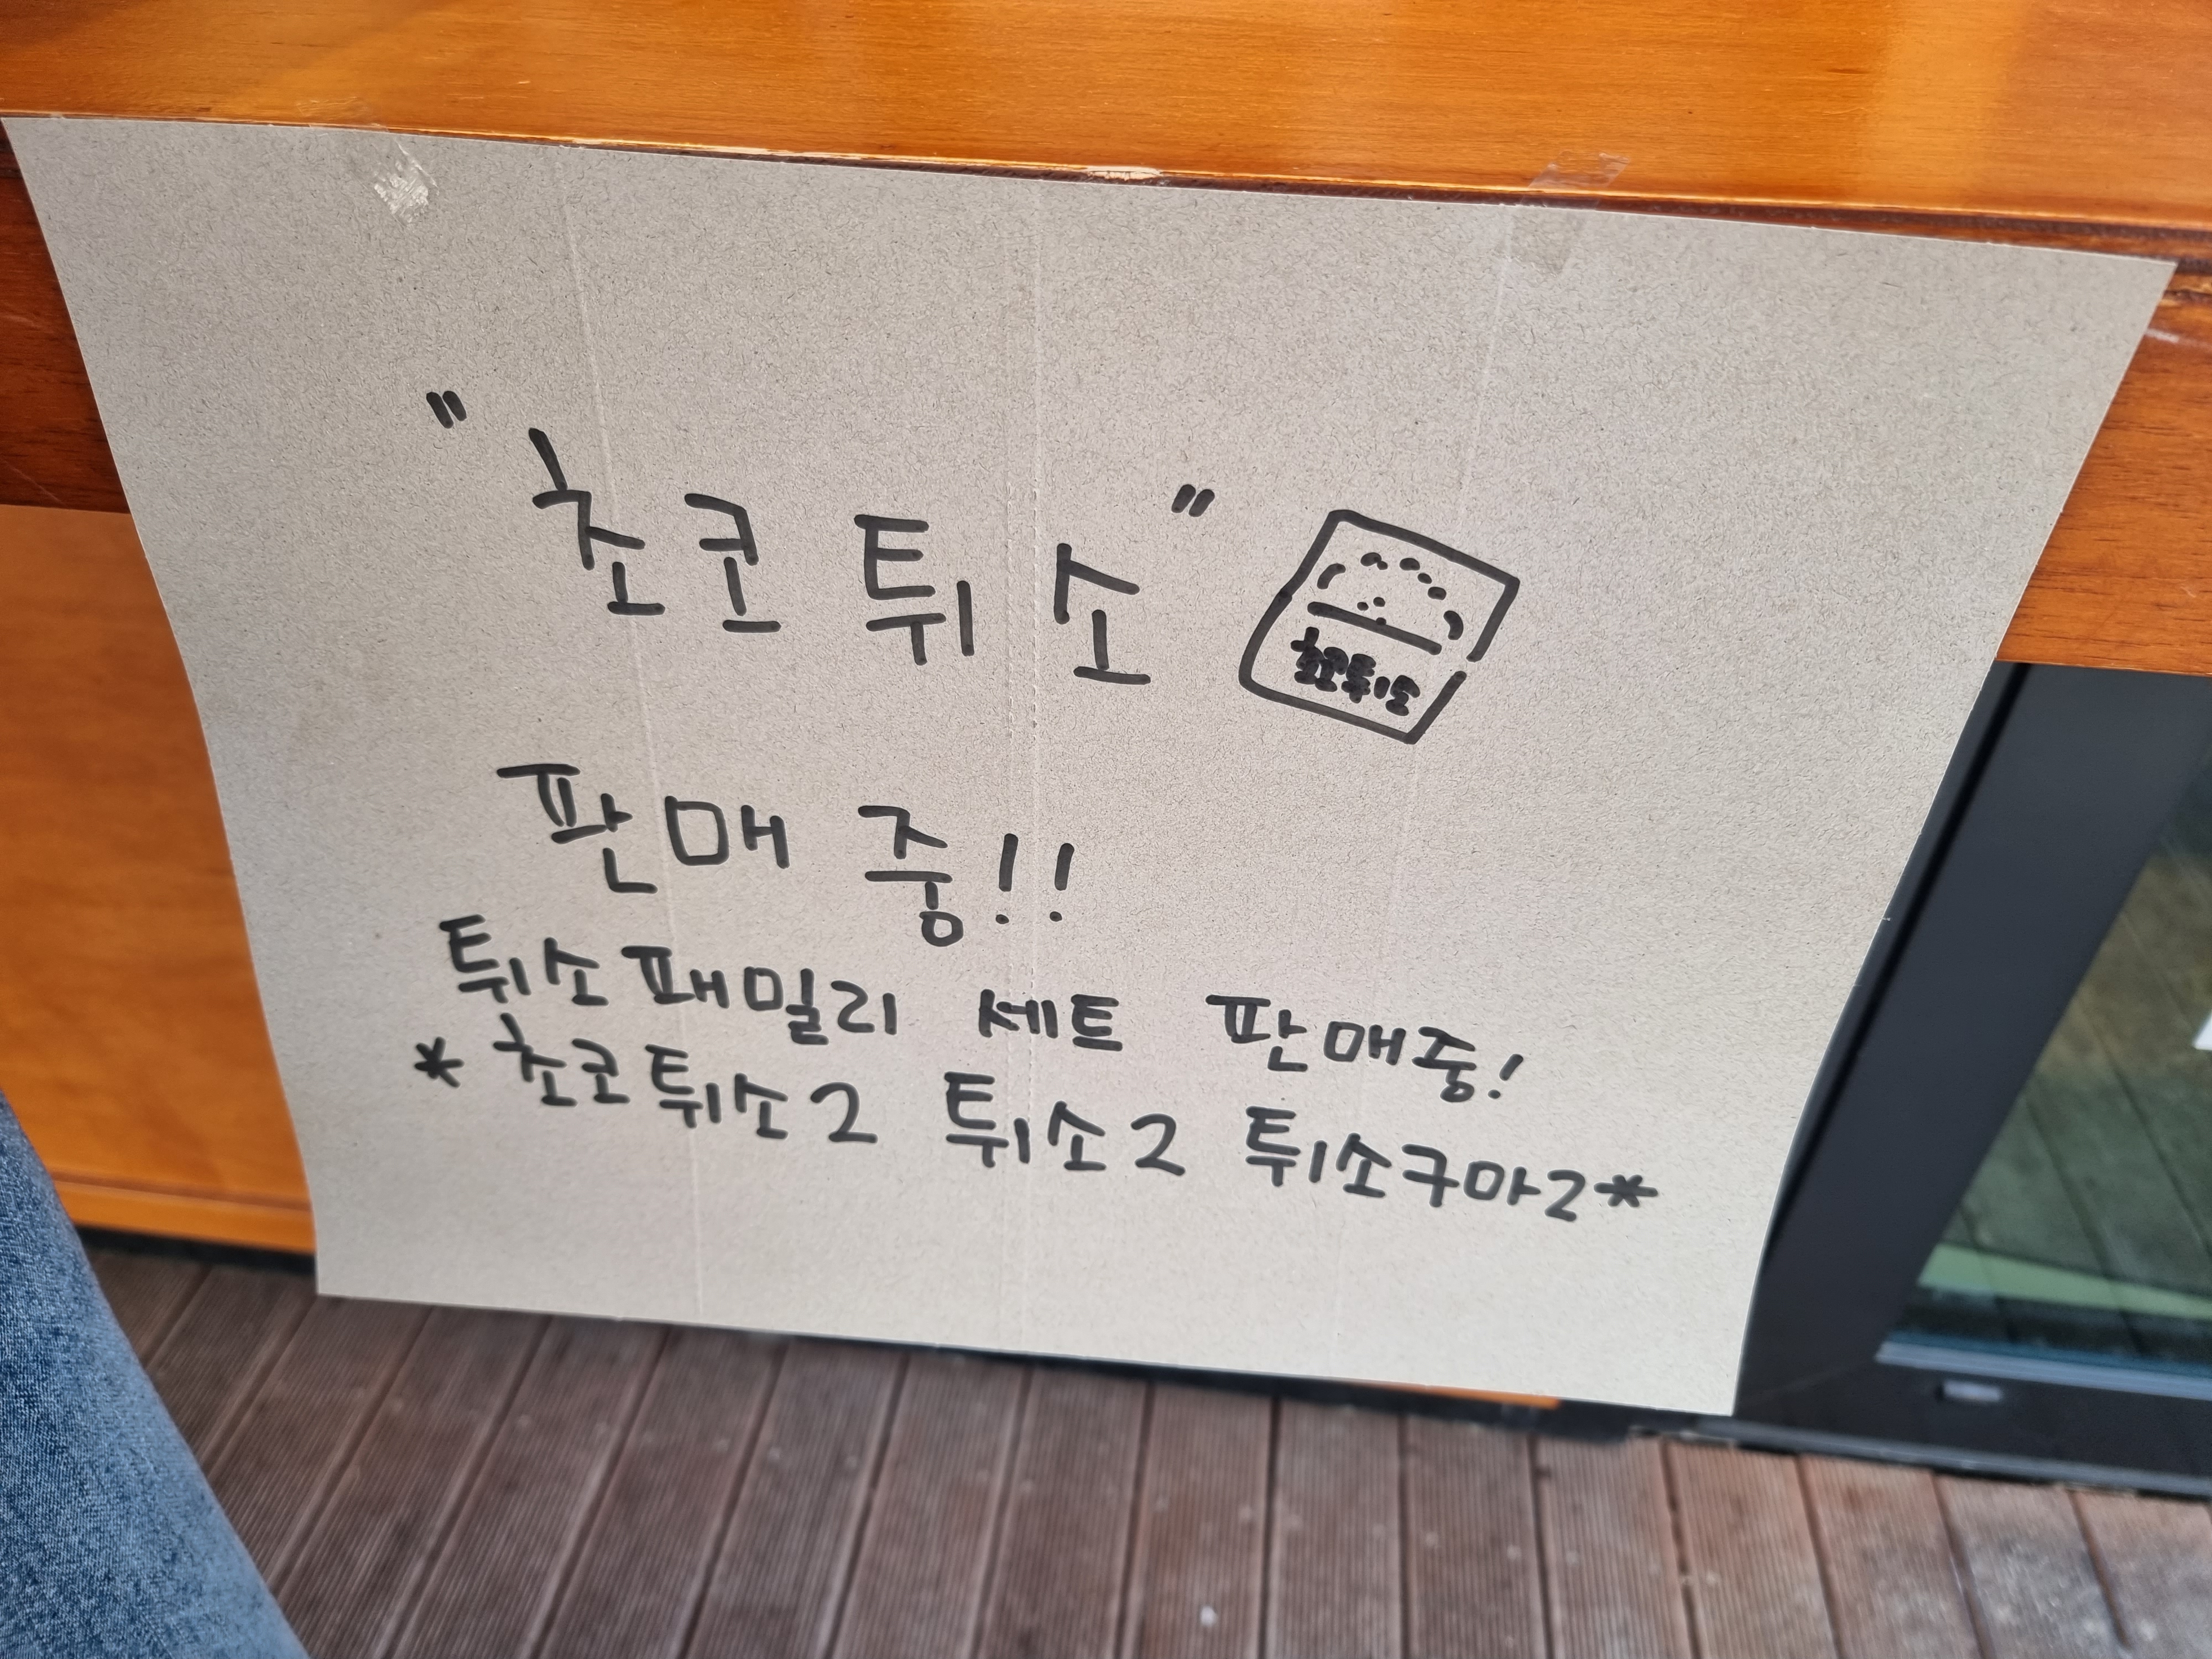 "초코튀소"
초코튀소
판매 중!!
튀소패밀리 세트 판매중!
* 초코튀소2 튀소2 튀소구마2*